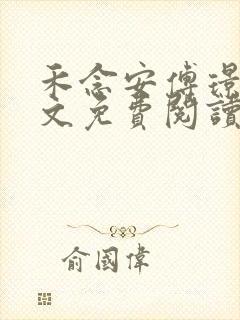 禾念安傅璟
文免費閱讀
俞國偉